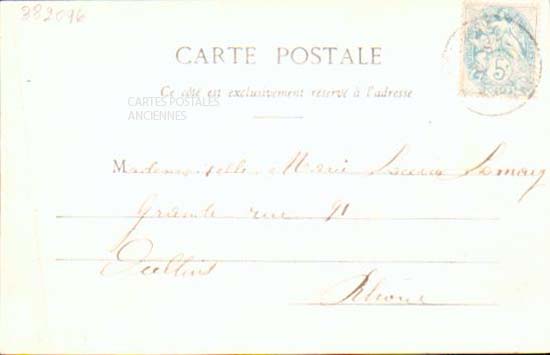 382096
CARTE POSTALE
5c
Ce côté est exclusivement réservé à l'adresse
CARTES POSTALES
ANCIENNES
Mademoiselle Marie
Grande rue 91
Oullins
Rhône